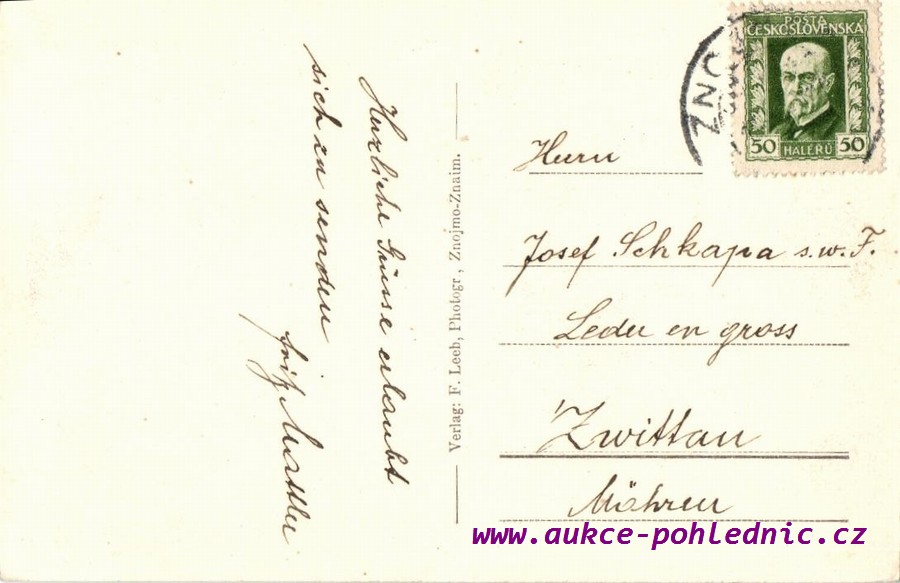 Herzliche Grüsse erlaubt
sich zu senden
Fritz
Verlag: F. Leeb, Photogr., Znojmo-Znaim.
POŠTA
ČESKOSLOVENSKÁ
50 HALÉŘŮ 50
ZNO
Herrn
Josef Schkapa s.w.F.
Leder en gross
Zwittau
Mähren
www.aukce-pohlednic.cz